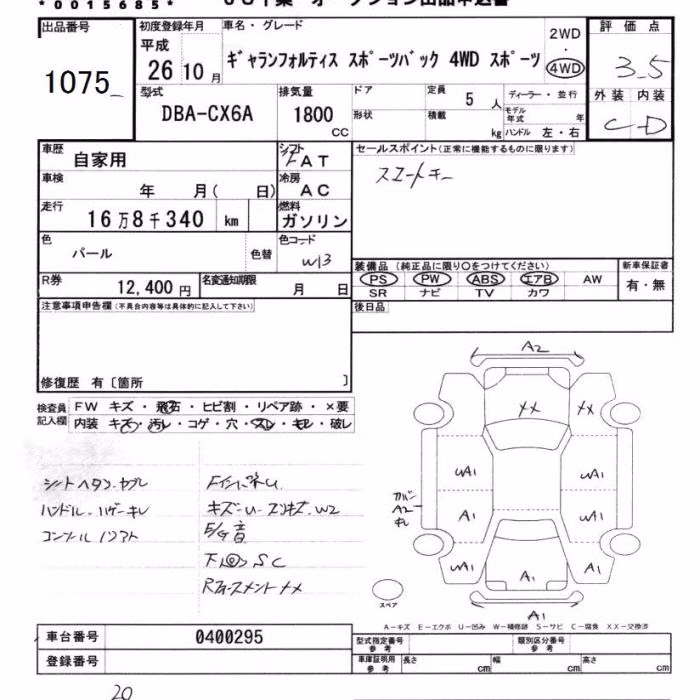 *0015685*
出品番号
1075
初度登録年月
平成
26年10月
車名・グレード
ギャランフォルティス スポーツバック 4WD スポーツ
2WD
・
4WD
評価点
3.5
外装 内装
C D
型式
DBA-CX6A
排気量
1800
CC
ドア
形状
定員
5人
積載
kg
ディーラー・並行
モデル年式 年
ハンドル 左・右
車歴
自家用
シフト
FAT
車検
年 月( 日)
冷房
AC
走行
16万8千340 km
燃料
ガソリン
色
パール
色替
色コード
W13
R券
12,400円
名変通知期限
月 日
セールスポイント(正常に機能するものに限ります)
スマートキー
装備品 (純正品に限り○をつけてください)
PS PW ABS エアB AW
SR ナビ TV カワ
新車保証書
有・無
後日品
注意事項申告欄(不具合内容等は具体的に記入して下さい)
修復歴 有〔箇所 〕
検査員記入欄
FW キズ・飛石・ヒビ割・リペア跡・×要
内装 キズ・汚レ・コゲ・穴・スレ・モレ・破レ
シートヘタリ・ヤブレ
コンソール
キズ・U・スリキズ・W2
E/G音
下回サビSC
A2
XX
XX
UA1
UA1
A1
UA1
カバー
A2
キレ
UA1
A1
A1
A1
スペア
A-キズ E-エクボ U-凹み W-補修跡 S-サビ C-腐食 XX-交換済
車台番号
0400295
登録番号
型式指定番号
参考
類別区分番号
参考
車庫証明用
参考
長さ cm
幅 cm
高さ cm
20